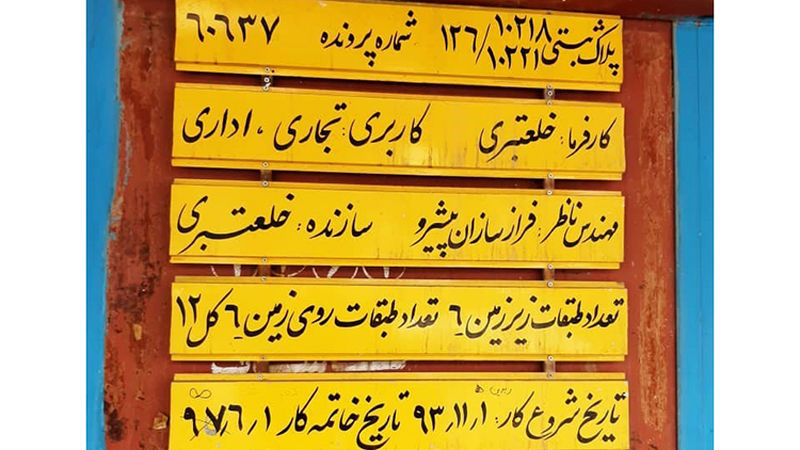 پلاک ثبتی ۱۰۲۱۸ ۱۰۲۲۱/۱۲۶ شماره پرونده ۶۰۶۳۷
کارفرما: خلعتبری کاربری: تجاری، اداری
مهندس ناظر: فرازسازان پیشرو سازنده: خلعتبری
تعداد طبقات زیرزمین ۶ تعداد طبقات روی زمین ۶ کل ۱۲
تاریخ شروع کار: ۹۳,۱۱,۱ تاریخ خاتمه کار ۹۷,۶,۱